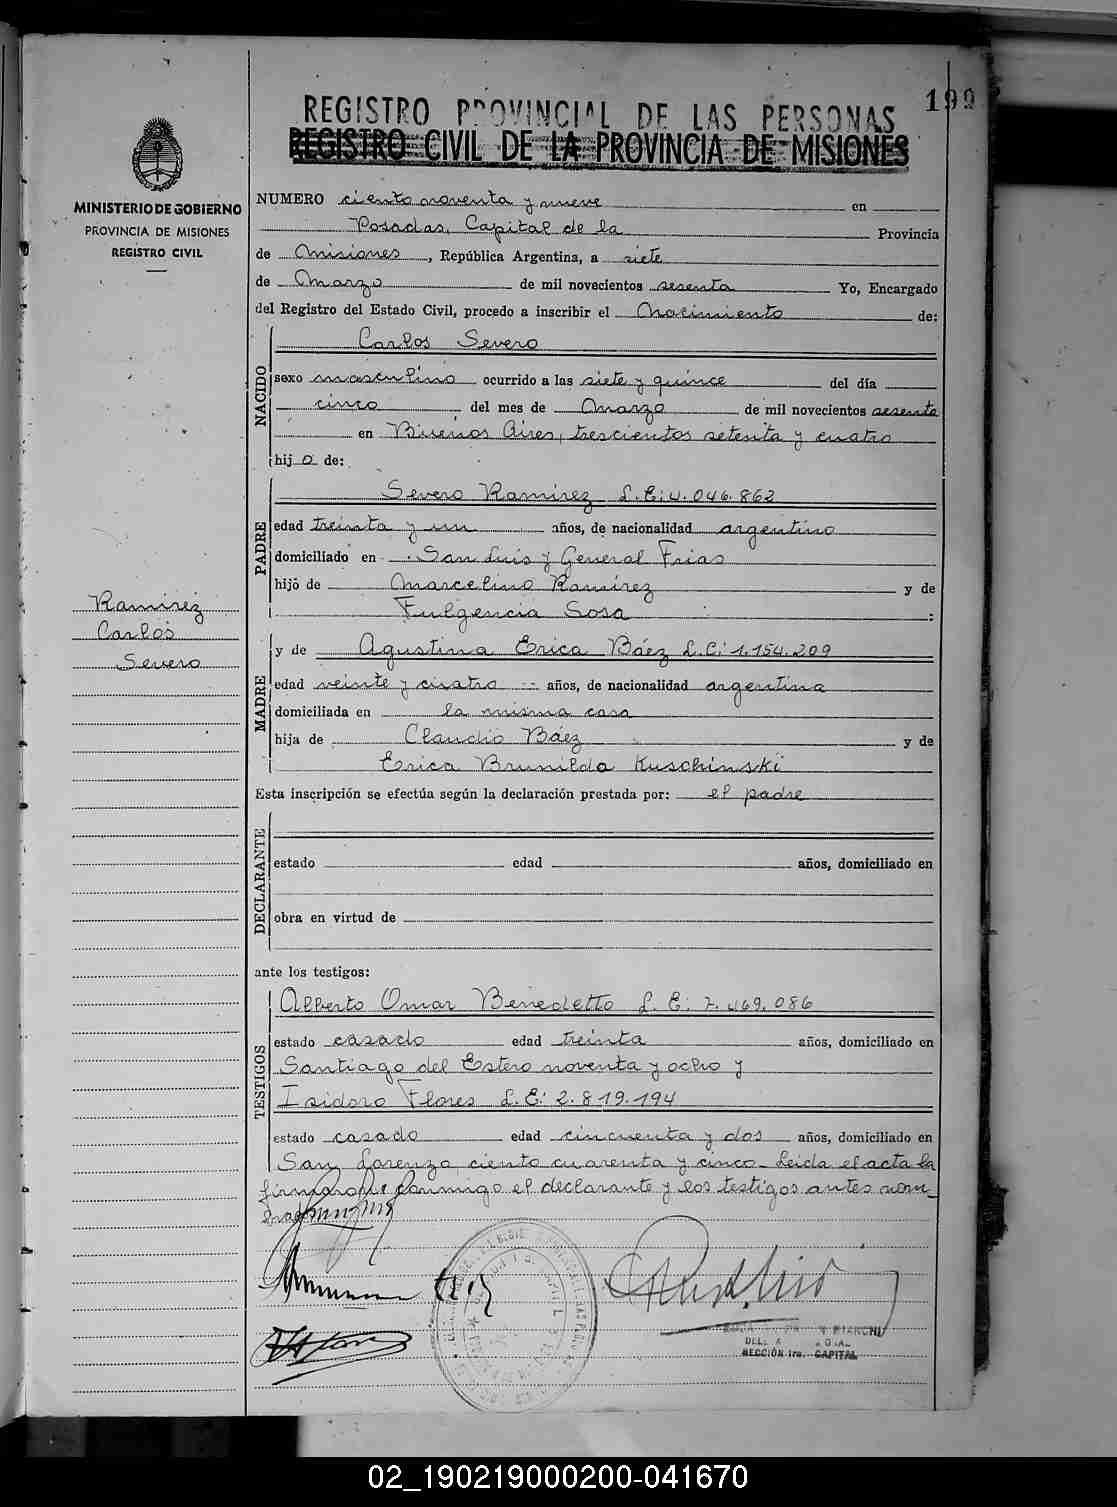 199
REGISTRO PROVINCIAL DE LAS PERSONAS
REGISTRO CIVIL DE LA PROVINCIA DE MISIONES
MINISTERIO DE GOBIERNO
PROVINCIA DE MISIONES
REGISTRO CIVIL
NUMERO ciento noventa y nueve en
Posadas, Capital de la Provincia
de Misiones, República Argentina, a siete
de Marzo de mil novecientos sesenta Yo, Encargado
del Registro del Estado Civil, procedo a inscribir el Nacimiento de:
NACIDO
Carlos Severo
sexo masculino ocurrido a las siete y quince del día
cinco del mes de Marzo de mil novecientos sesenta
en Buenos Aires, trescientos setenta y cuatro
hijo de:
PADRE
Severo Ramirez L.E: 4.046.862
edad treinta y un años, de nacionalidad argentino
domiciliado en San Luis y General Frias
hijo de Marcelino Ramírez y de
Fulgencia Sosa
Ramirez
Carlos
Severo
MADRE
y de Agustina Erica Báez L.C: 1.154.209
edad veinte y cuatro años, de nacionalidad argentina
domiciliada en la misma casa
hija de Claudio Báez y de
Erica Brunilda Kuschinski
Esta inscripción se efectúa según la declaración prestada por: el padre
DECLARANTE
estado edad años, domiciliado en
obra en virtud de
ante los testigos:
TESTIGOS
Alberto Omar Benedetto L.E: 7.469.086
estado casado edad treinta años, domiciliado en
Santiago del Estero noventa y ocho y
Isidoro Flores L.E: 2.819.194
estado casado edad cincuenta y dos años, domiciliado en
San Lorenzo ciento cuarenta y cinco. Leida el acta la
firmaron conmigo el declarante y los testigos antes nom-
brados
BIANCHI
SECCIÓN 1ra. CAPITAL
02_190219000200-041670